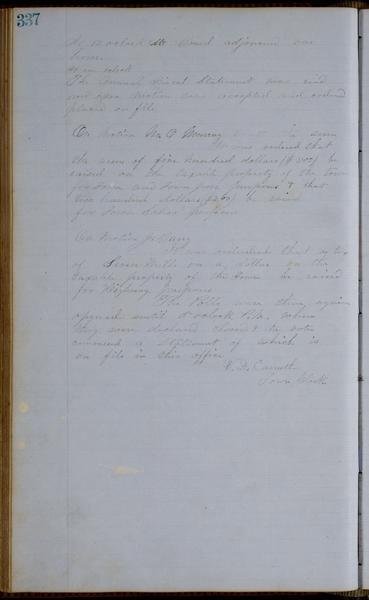 337
At 12 oclock M Board adjourned one
hour.
The Annual Fiscal Statement was read
and upon motion was accepted and ordered
placed on file.
On motion Wm P Murray
It was ordered that
the sum of five hundred dollars ($500) be
raised on the taxable property of the town
for Town and Town poor purposes & that
hundred dollars be raised
for Town purposes
On motion
It was ordered that a tax
of Seven Mills on a dollar on the
taxable property of the town be raised
for Highway purposes
The Polls were then again
opened until 5 oclock P.M. when
they were declared closed & the votes
canvassed a Statement of which is
on file in this office
Town Clerk